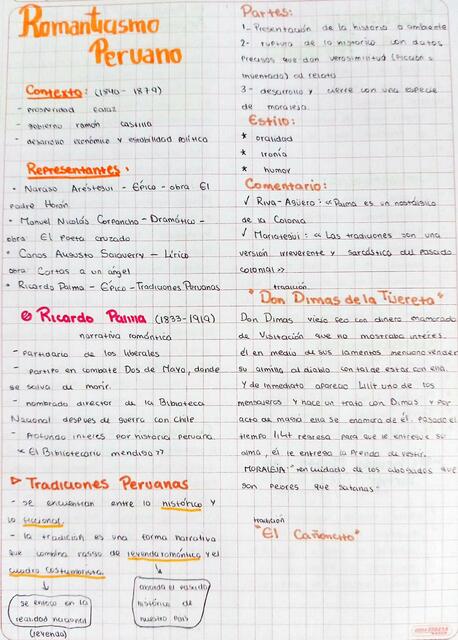 Romanticismo
Peruano
Contexto: (1840- 1879)
- prosperidad falaz
- gobierno ramón castilla
- desarrollo económico y estabilidad política
Representantes:
• Narciso Aréstegui - Épico - obra El
padre Horán
• Manuel Nicolás Corpancho - Dramático -
obra El Poeta cruzado
• Carlos Augusto Salaverry - Lírico
obra Cartas a un ángel
• Ricardo Palma - Épico - Tradiciones Peruanas
Ricardo Palma (1833-1919)
narrativa romántica
- partidario de los liberales
- partipo en combate Dos de Mayo, donde
se salva de morir.
- nombrado director de la Biblioteca
Nacional despues de guerra con Chile
- Profundo interes por historia peruana.
"El Bibliotecario mendigo"
▷ Tradiciones Peruanas
- se encuentran entre lo histórico y
lo ficcional.
- la tradicion es una forma narrativa
que combina rasgo de leyenda romántica y el
cuadro costumbrista.
se enfoca en la
realidad nacional
(leyenda)
ahonda el pasado
histórico de
nuestro país
Partes:
1- Presentación de la historia o ambiente
2- ruptura de lo histórico con datos
precisos que dan verosimilitud (ficción o
inventado) al relato
3- desarrollo y cierre con una especie
de moraleja.
Estilo:
* oralidad
* Ironía
* humor
Comentario:
✓ Riva-Agüero: «Palma es un nostálgico
de la Colonia
✓ Mariategui: «Las tradiciones son una
versión irreverente y sarcástica del pasado
colonial»
tradición
"Don Dimas de la Tijereta"
Don Dimas viejo feo con dinero enamorado
de Visitación que no mostraba interes.
él en medio de sus lamentos menciona vender
su almilla al diablo con tal de estar con ella.
Y de inmediato aparece Lilit uno de los
mensajeros y hace un trato con Dimas y por
acto de magia ella se enamora de él. pasado el
tiempo Lilit regresa para que le entregue su
alma, él le entrega la prenda de vestir.
MORALEJA: "ten cuidado de los abogados que
son peores que satanas"
tradición
"El Cañoncito"